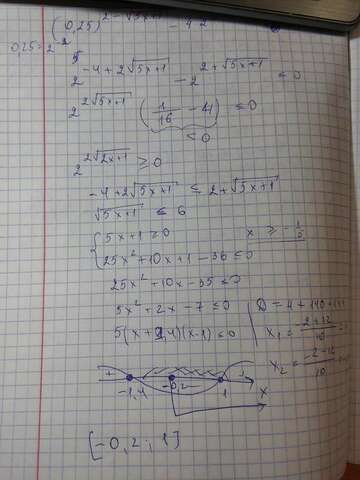 (0,25)^{2-\sqrt{5x+1}} - 4 \cdot 2
0,25 = 2^{-2}
2^{-4+2\sqrt{5x+1}} - 2^{2+\sqrt{5x+1}} ≤ 0
2^{2\sqrt{5x+1}} (1/16 - 4) ≤ 0
< 0
2^{2\sqrt{2x+1}} ≥ 0
-4+2\sqrt{5x+1} ≤ 2+\sqrt{5x+1}
\sqrt{5x+1} ≤ 6
{ 5x+1 ≥ 0 x ≥ -1/5
25x²+10x+1-36 ≤ 0
25x²+10x-35 ≤ 0
5x²+2x-7 ≤ 0 D = 4+140
5(x+1,4)(x-1) ≤ 0 x₁ = (-2+12)/10
x₂ = (-2-12)/10
+ - +
-1,4 -0,2 1 x
[-0,2 ; 1]